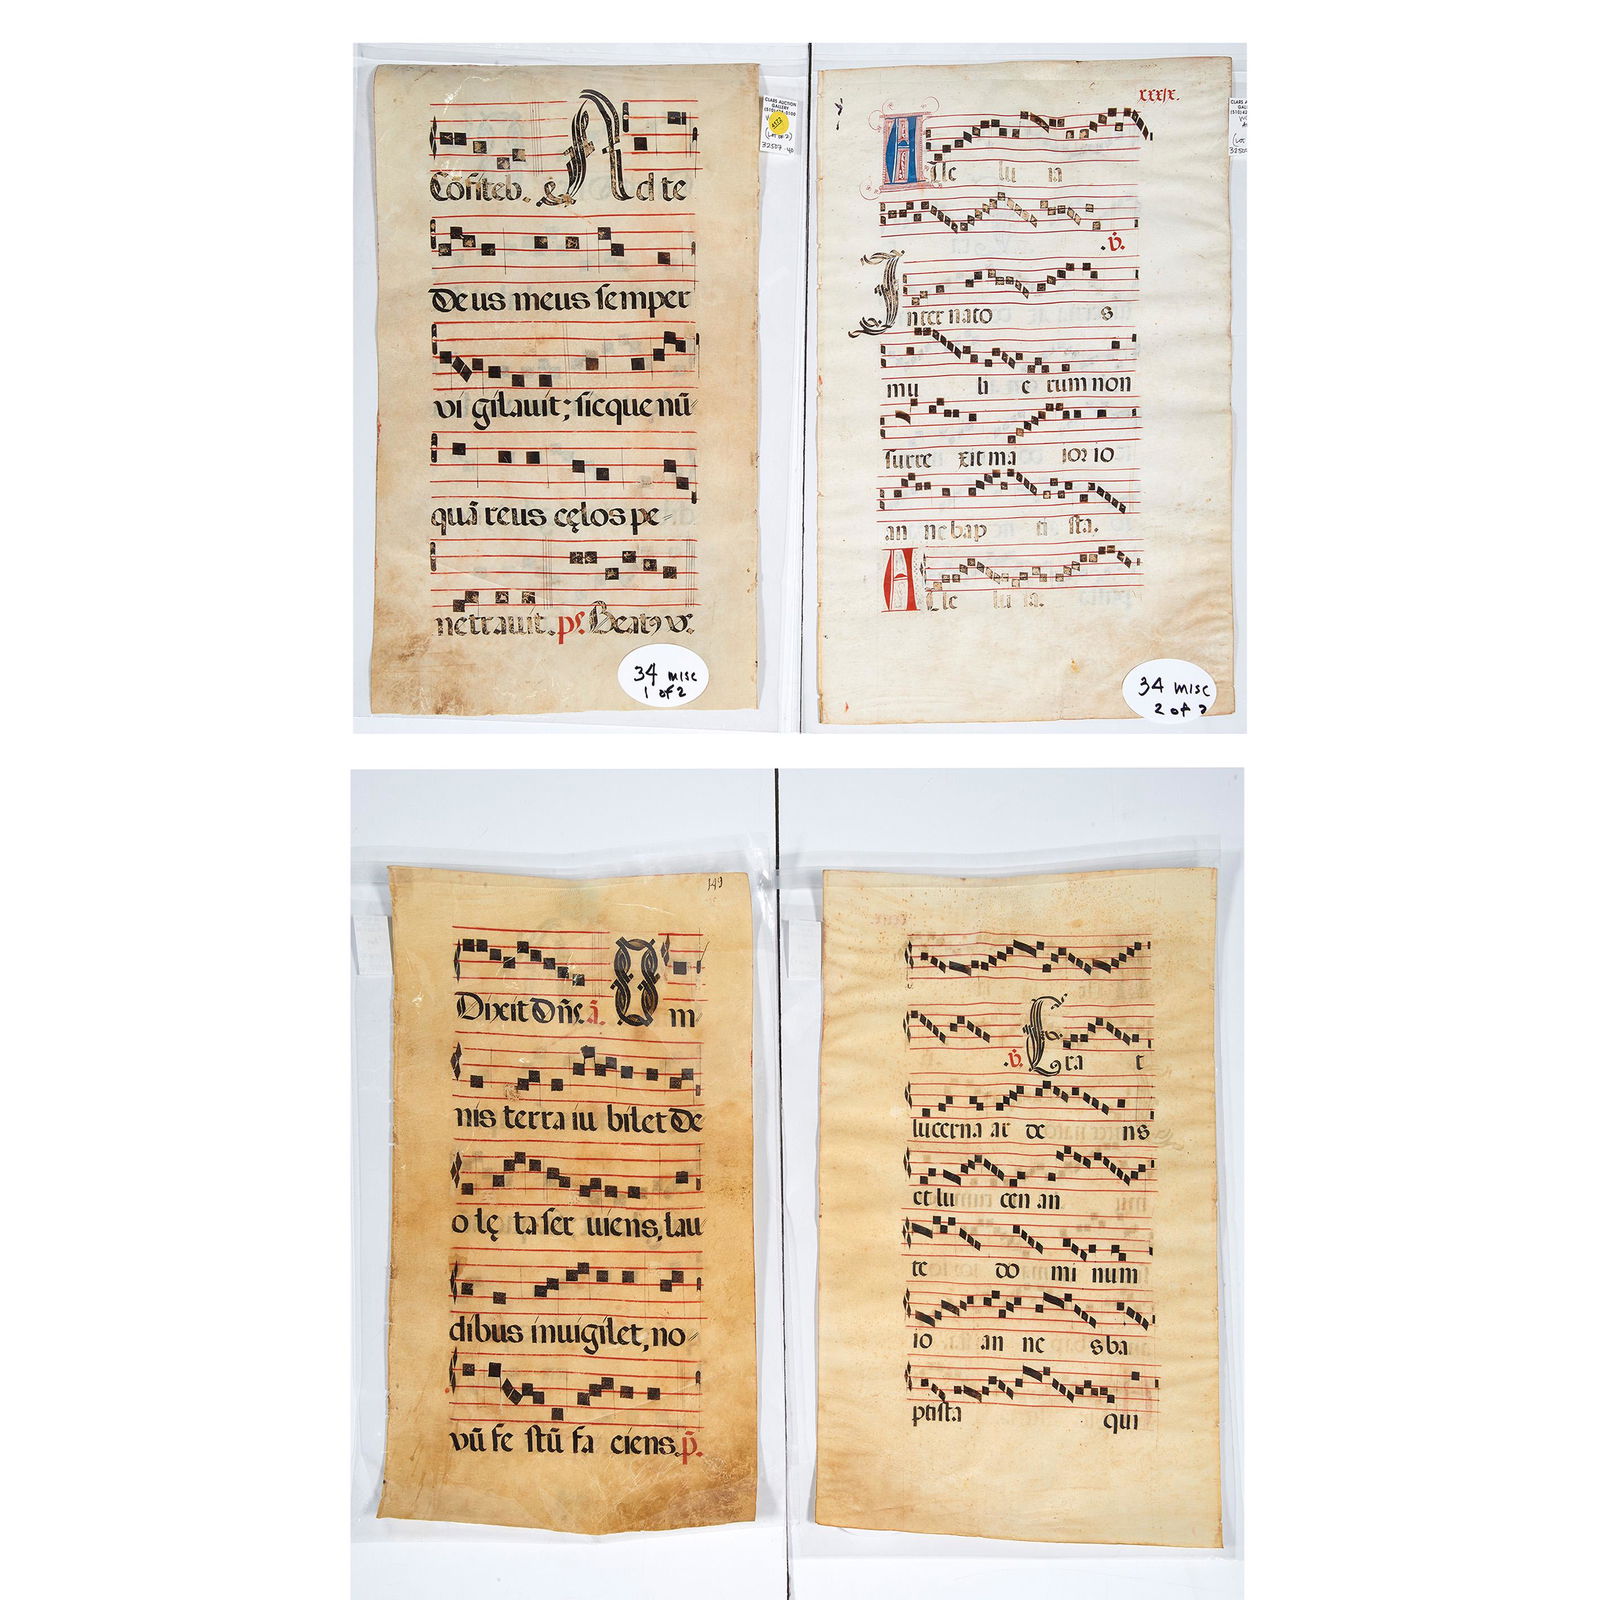 Cōfiteb. Ad te
deus meus semper
vi gilauit; sicque nū
quā reus cęlos pe=
netrauit. ps. Beat9 v.
34 misc
1 of 2
CLARS AUCTION
GALLERY
32507-40
XXXIX.
Alle lu ia
.v.
Inter nato s
mu li e rum non
surre xit ma ior io
an ne bap ti sta.
Alle lu ia.
34 misc
2 of 2
149
Dixit Dñs. ā. Om
nis terra iu bilet de
o lę ta ser uiens, lau
dibus inuigilet, no=
vū fe stū fa ciens. p̄.
.v. Era t
lucerna ar de ns
et lu cen an
te do mi num
io an ne s ba
ptista qui